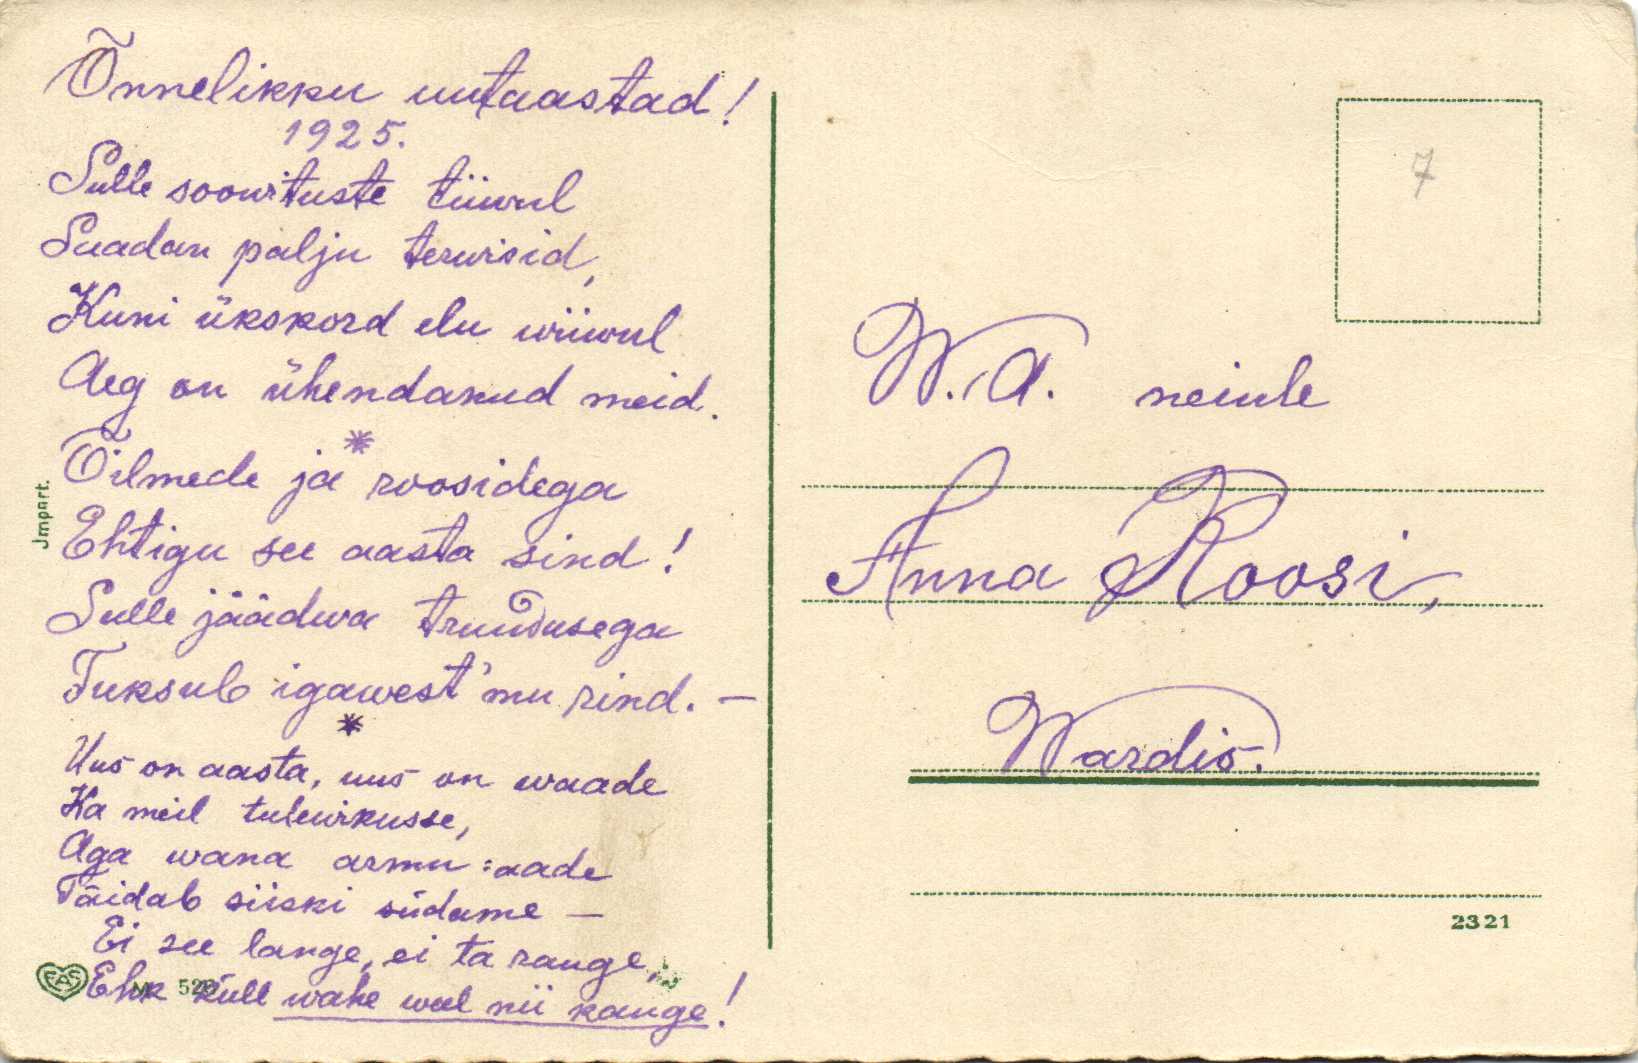 Õnnelikku uutaastad!
1925.
Sulle soowituste tiiwul
Saadan palju terwisid,
Kuni ükskord elu wiiwul
Aeg on ühendanud meid.
*
Õilmede ja roosidega
Ehtigu see aasta sind!
Sulle jäädwa truudusega
Tuksub igawest' mu rind. —
*
Uus on aasta, uus on waade
Ka meil tulewikusse,
Aga wana armu-aade
Täidab siiski südame —
Ei see lange, ei ta rauge,
Ehk küll wahe weel nii kauge!
Import.
EAS
520
7
W. A. neiule
Anna Roosi,
Wardis.
2321